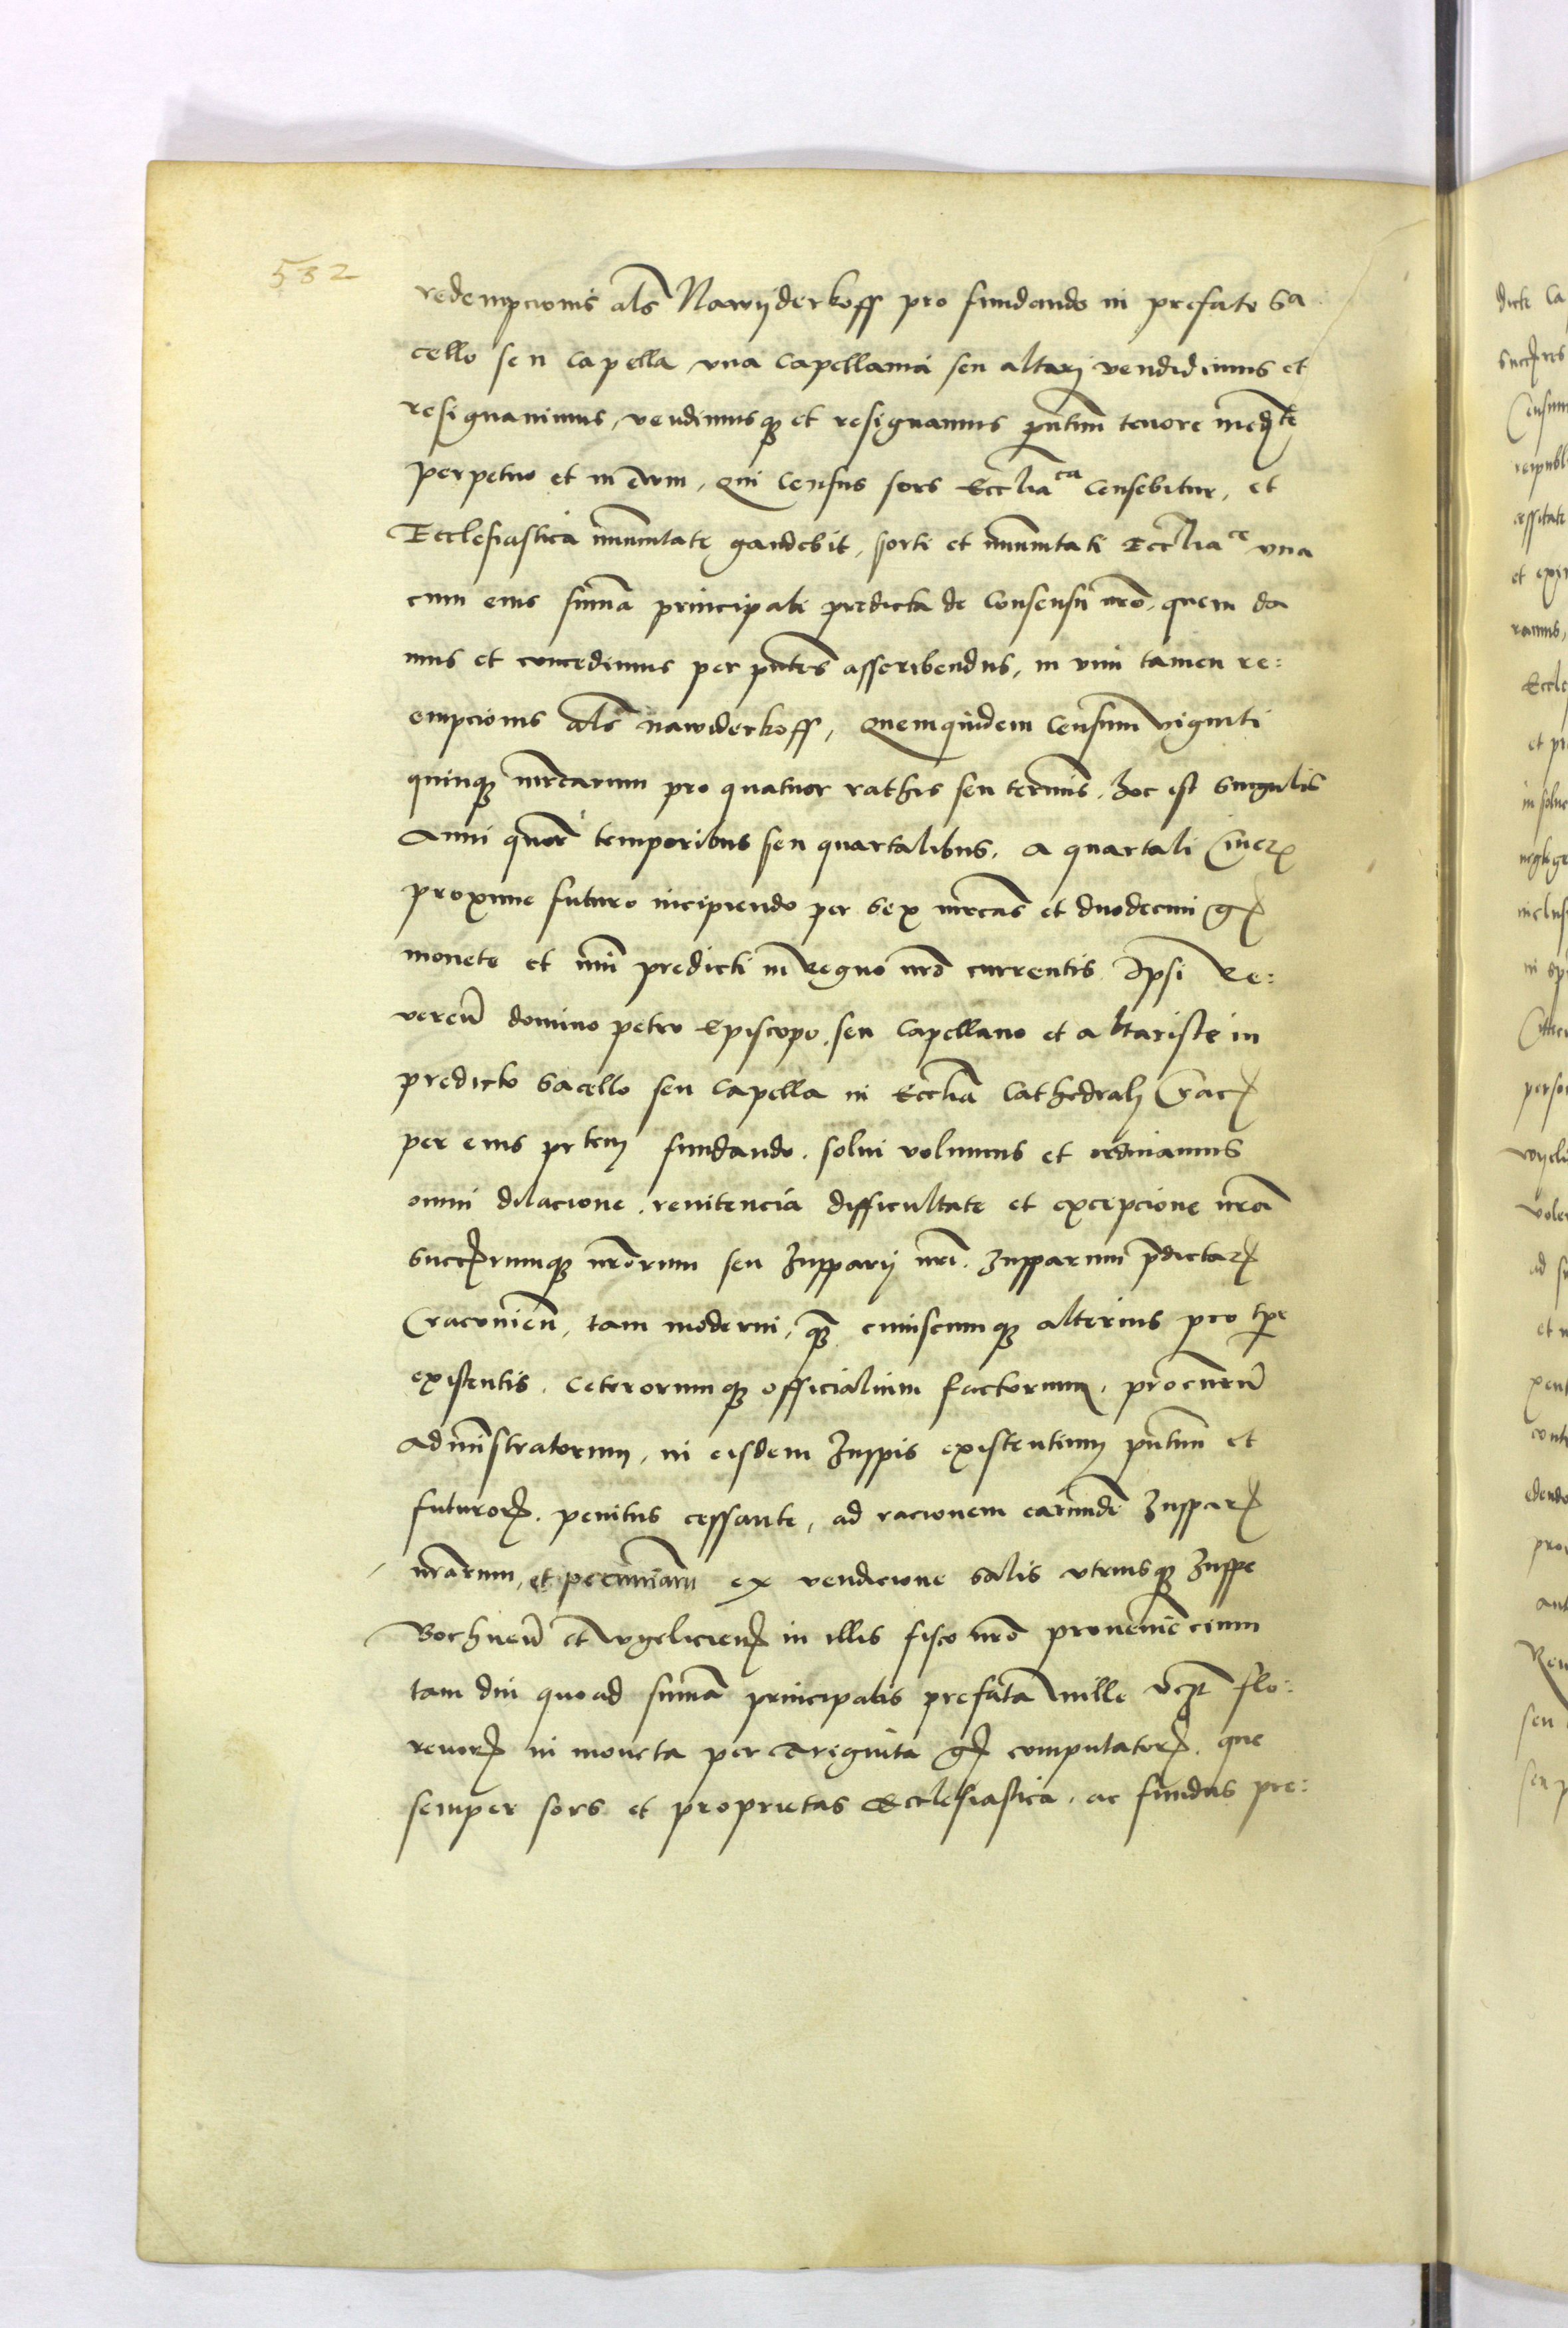 532
redempcionis als Nawyderkoff pro fundando in prefato Sa
cello seu Capella vna Capellania seu altarj vendidimus et
resignauimus, vendimusq et resignamus pntium tenore medte
perpetuo et in evum, qui Census sors Eccliaca Censebitur, et
Ecclesiastica immunitate gaudebit, sorti et immunitati Ecclia ce vna
cum eius summa principali predicta de Consensu nro, quem da
mus et concedimus per pntes asscribendus, in vim tamen re:
empcionis als nawiderkoff, Quemquidem Censum viginti
quinq mrcarum pro quatuor rathis seu terminis, hoc est Singulis
Anni quor temporibus seu quartalibus, a quartali Cinerum
proxime futuro incipiendo per Sex mrcas et duodecim gr
monete et nri predicti in Regno nro currentis Ipsi Re:
veren domino petro Episcopo, seu Capellano et altariste in
predicto Sacello seu Capella in Ecclia Cathedralj Crac
per eius prtem fundando, solui volumus et ordinamus
omni dilacione, renitencia difficultate et excepcione nra
Succrumq nrorum seu Zupparij nri, Zupparum pdictar
Cracouien, tam moderni, qz cuiuscumq alterius pro tpe
existentis, Ceterorumq officialium factorum, procurm
Administratorum, in eisdem Zuppis existentium pntium et
futuror, penitus cessante, ad racionem earundem Zuppar
nrarum, et pecuniarum ex vendicione Salis vtriusq Zuppe
Bochnen et Vyelicien in illis fisco nro proueniencium
tam diu quoad summa principalis prefata Mille florenor
renor in moneta per triginta gr computator, que
semper sors et proprietas Ecclesiastica, ac fundus pre: